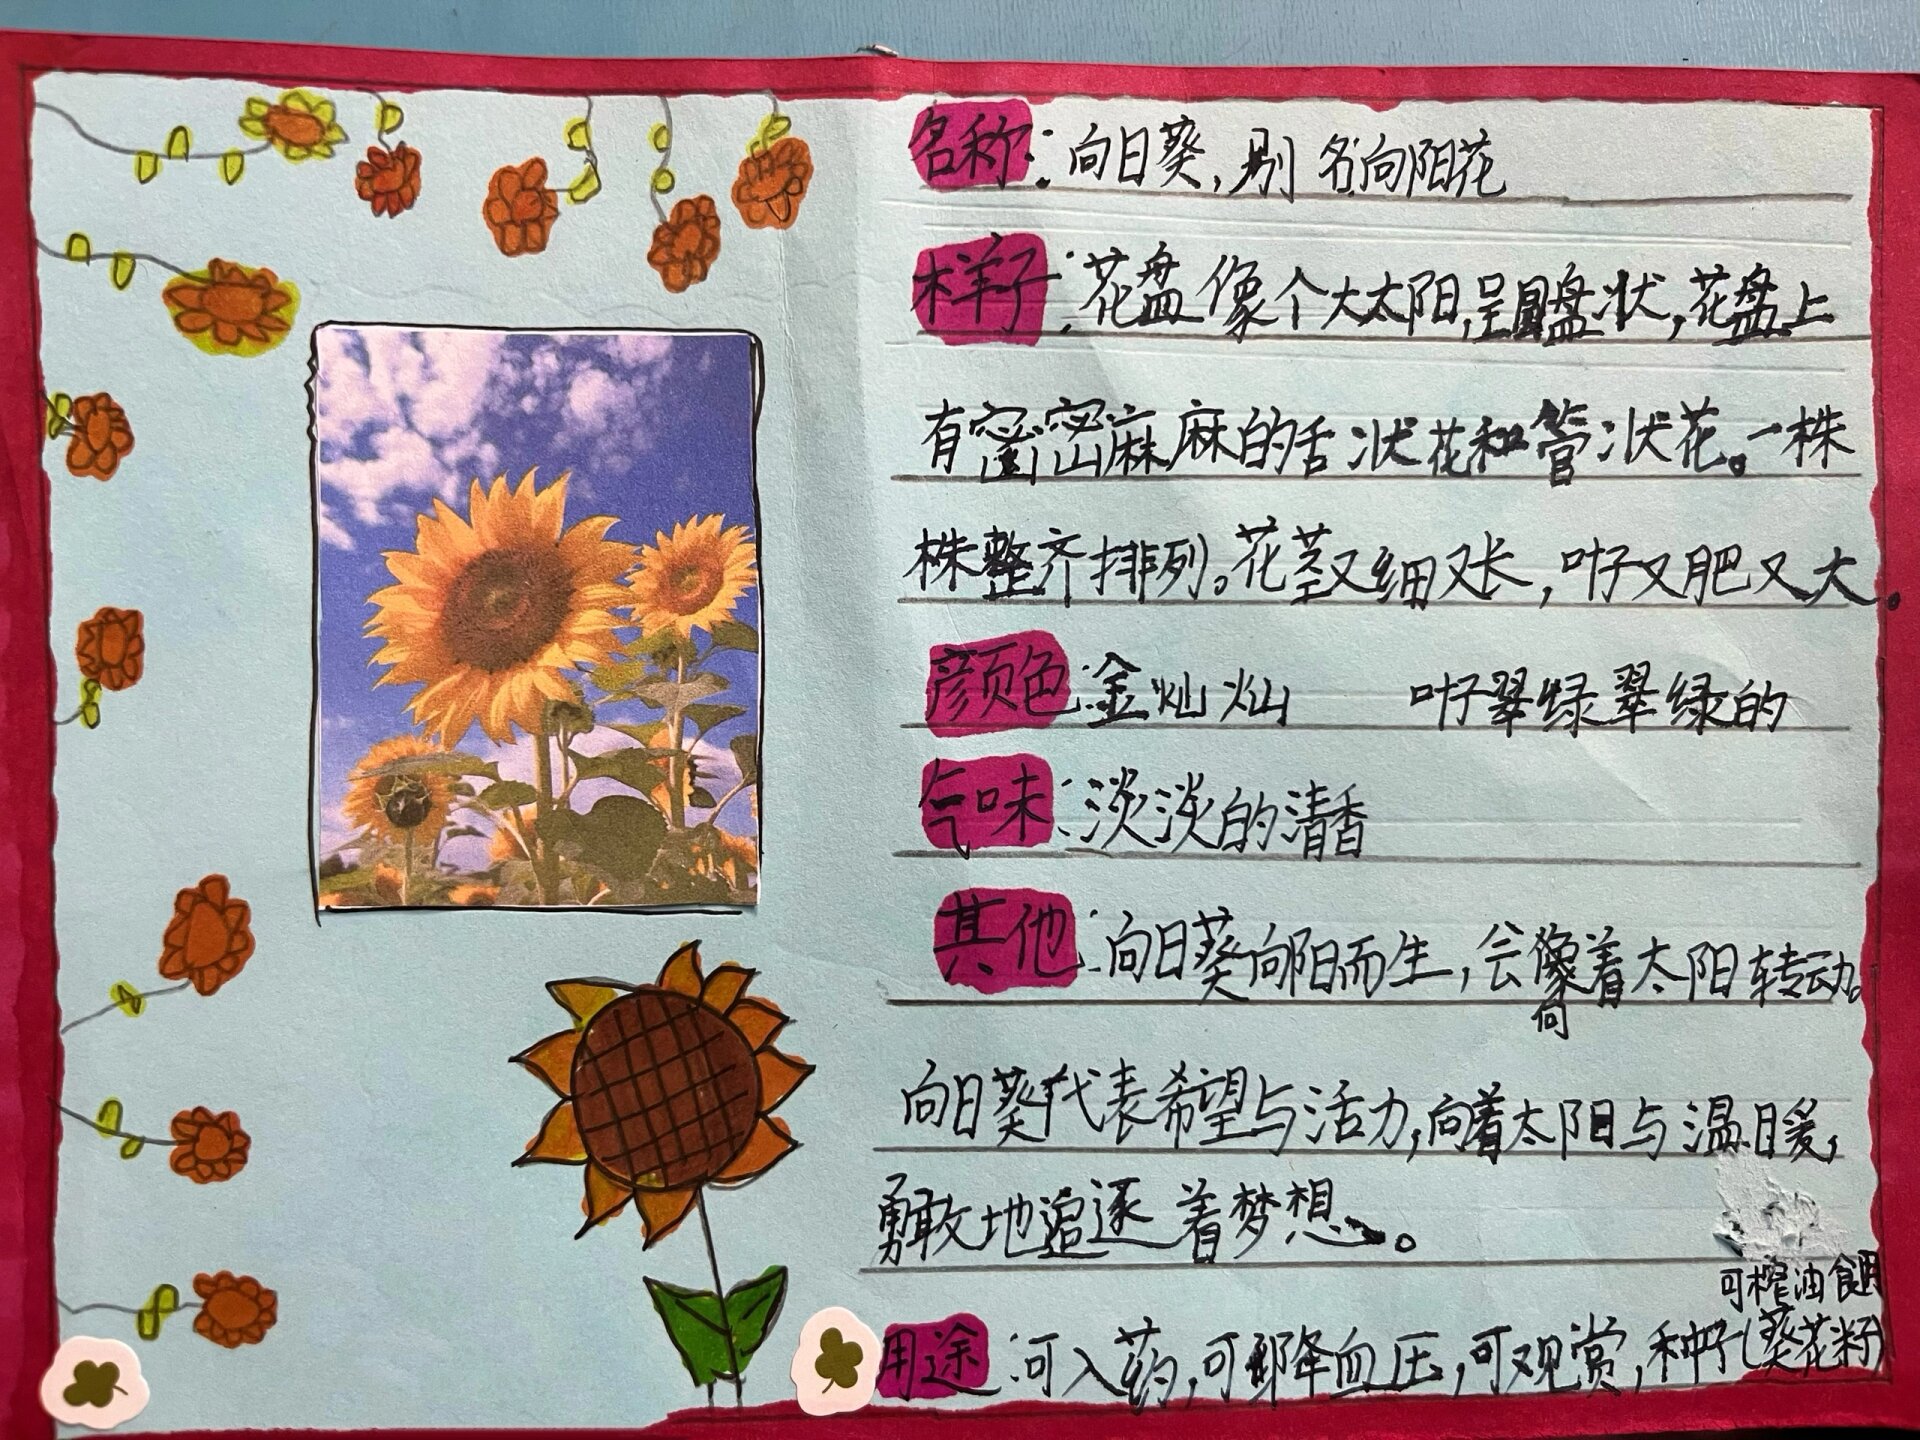 名称：向日葵，别名向阳花
样子：花盘像个大太阳，呈圆盘状，花盘上
有密密麻麻的舌状花和管状花。一株
株整齐排列。花茎又细又长，叶子又肥又大。
颜色：金灿灿 叶子翠绿翠绿的
气味：淡淡的清香
其他：向日葵向阳而生，会像着太阳转动。
向
向日葵代表希望与活力，向着太阳与温暖，
勇敢地追逐着梦想。
可榨油食用
用途：可入药，可降血压，可观赏，种子（葵花籽）